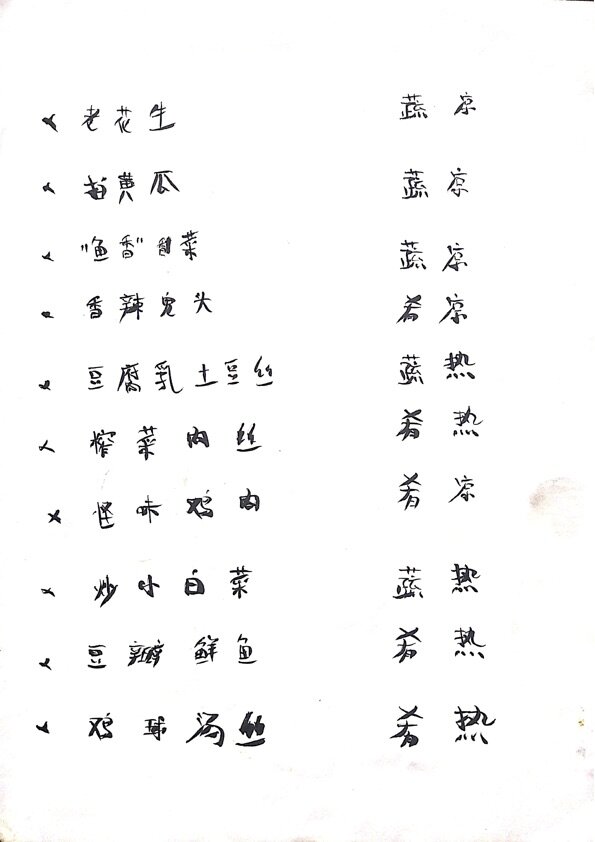 × 老花生 蔬 凉
× 拍黄瓜 蔬 凉
× "鱼香"菜 蔬 凉
× 香辣兔头 肴 凉
× 豆腐乳土豆丝 蔬 热
× 榨菜肉丝 肴 热
× 怪味鸡肉 肴 凉
× 炒小白菜 蔬 热
× 豆瓣鲜鱼 肴 热
× 鸡球丝 肴 热